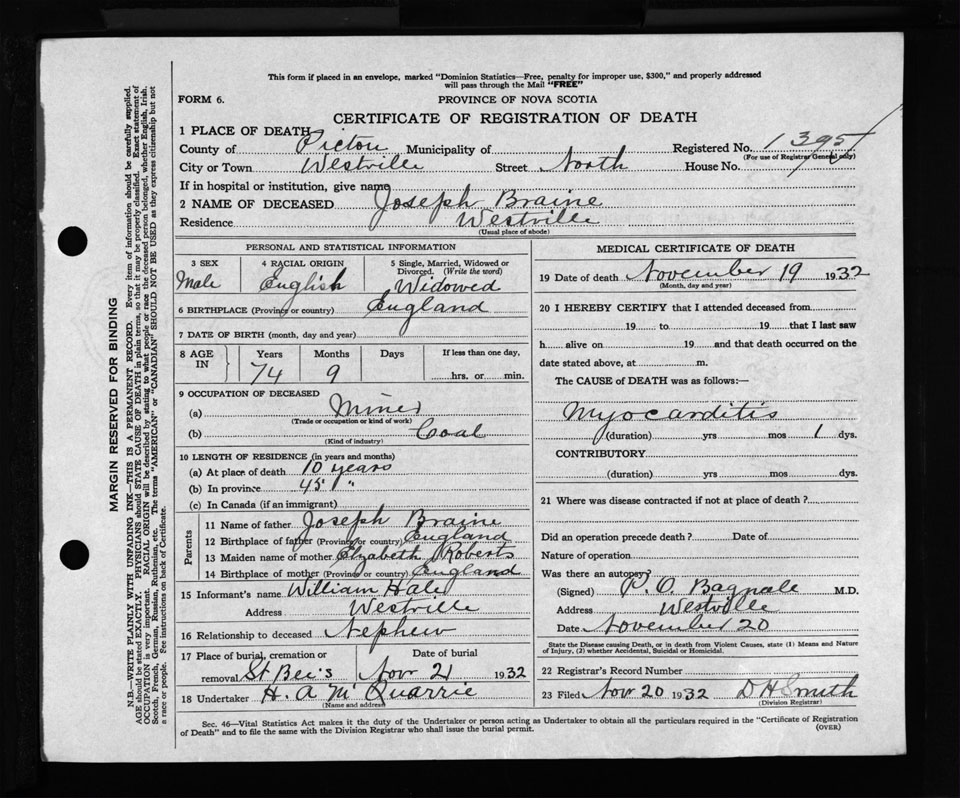 This form if placed in an envelope, marked "Dominion Statistics—Free, penalty for improper use, $300," and properly addressed
will pass through the Mail "FREE"
FORM 6.
PROVINCE OF NOVA SCOTIA
CERTIFICATE OF REGISTRATION OF DEATH
1 PLACE OF DEATH
County of Pictou Municipality of Registered No. 1395
(For use of Registrar General only)
City or Town Westville Street North House No.
If in hospital or institution, give name
2 NAME OF DECEASED Joseph Braine
Residence Westville
(Usual place of abode)
PERSONAL AND STATISTICAL INFORMATION
3 SEX 4 RACIAL ORIGIN 5 Single, Married, Widowed or
Divorced. (Write the word)
Male English Widowed
6 BIRTHPLACE (Province or country) England
7 DATE OF BIRTH (month, day and year)
8 AGE IN Years Months Days If less than one day,
74 9 hrs. or min.
9 OCCUPATION OF DECEASED
(a) Miner
(Trade or occupation or kind of work)
(b) Coal
(Kind of industry)
10 LENGTH OF RESIDENCE (in years and months)
(a) At place of death 10 years
(b) In province 45 "
(c) In Canada (if an immigrant)
Parents
11 Name of father Joseph Braine
12 Birthplace of father (Province or country) England
13 Maiden name of mother Elyzabeth Roberts
14 Birthplace of mother (Province or country) England
15 Informant's name William Hale
Address Westville
16 Relationship to deceased Nephew
17 Place of burial, cremation or Date of burial
removal St. Bee's Nov 21 1932
18 Undertaker H. A. McQuarrie
(Name and address)
MEDICAL CERTIFICATE OF DEATH
19 Date of death November 19 1932
(Month, day and year)
20 I HEREBY CERTIFY that I attended deceased from
19 to 19 that I last saw
h alive on 19 and that death occurred on the
date stated above, at m.
The CAUSE of DEATH was as follows:—
Myocarditis
(duration) yrs mos 1 dys.
CONTRIBUTORY
(duration) yrs mos dys.
21 Where was disease contracted if not at place of death?
Did an operation precede death? Date of
Nature of operation
Was there an autopsy?
(Signed) P. O. Bagnale M.D.
Address Westville
Date November 20
State the Disease causing Death, or in death from Violent Causes, state (1) Means and Nature
of Injury, (2) whether Accidental, Suicidal or Homicidal.
22 Registrar's Record Number
23 Filed Nov 20 1932 D H Smith
(Division Registrar)
Sec. 46—Vital Statistics Act makes it the duty of the Undertaker or person acting as Undertaker to obtain all the particulars required in the "Certificate of Registration
of Death" and to file the same with the Division Registrar who shall issue the burial permit.
(OVER)
MARGIN RESERVED FOR BINDING
N.B.—WRITE PLAINLY WITH UNFADING INK—THIS IS A PERMANENT RECORD. Every item of information should be carefully supplied.
AGE should be stated EXACTLY. PHYSICIANS should STATE CAUSE OF DEATH in plain terms, so that it may be properly classified. Exact statement of
OCCUPATION is very important. RACIAL ORIGIN will be described by stating to what people or race the deceased person belonged, whether English, Irish,
Scotch, French, German, Russian, Ruthenian, etc. The terms "AMERICAN" or "CANADIAN" SHOULD NOT BE USED as they express citizenship but not
a race or people. Fee instructions on back of Certificate.